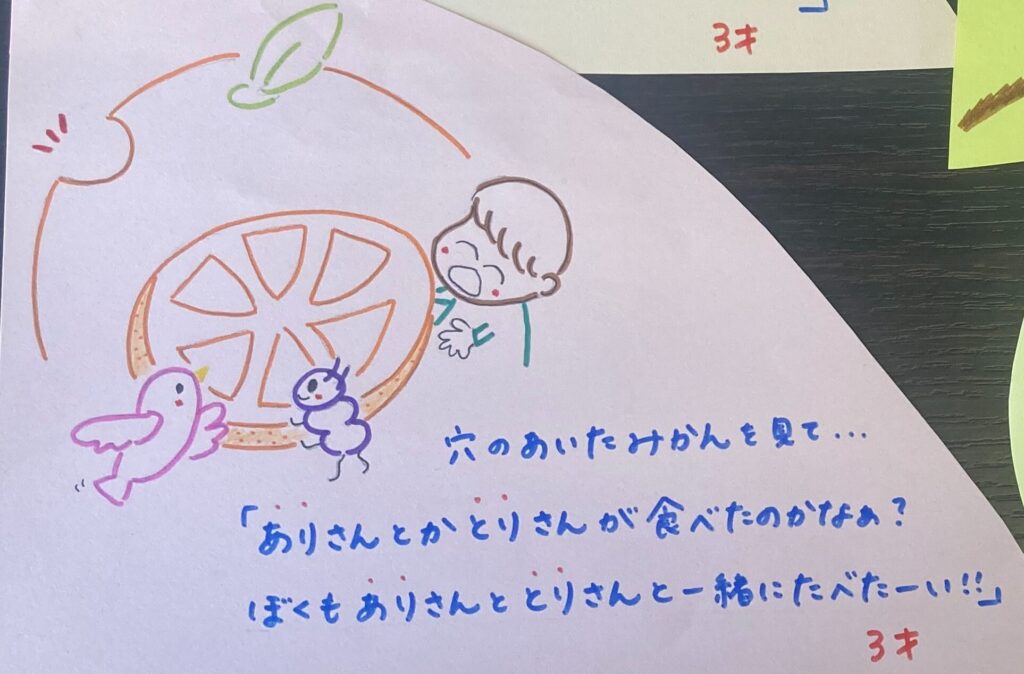 」
3才
穴のあいたみかんを見て...
「ありさんとかとりさんが食べたのかなぁ？
ぼくもありさんととりさんと一緒にたべたーい!!」
3才